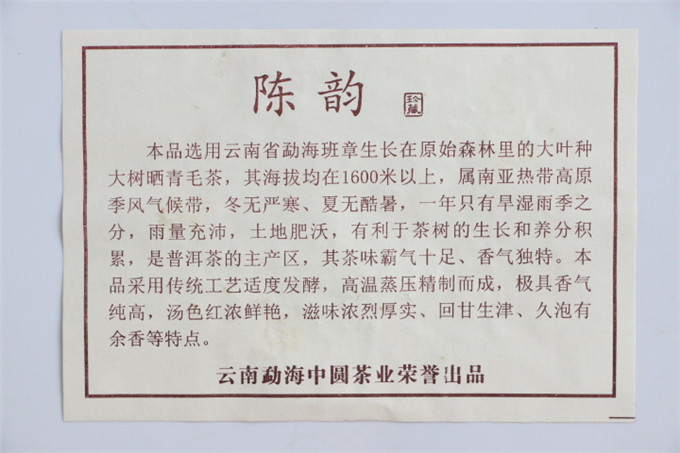 陈韵 珍藏
本品选用云南省勐海班章生长在原始森林里的大叶种
大树晒青毛茶，其海拔均在1600米以上，属南亚热带高原
季风气候带，冬无严寒、夏无酷暑，一年只有旱湿雨季之
分，雨量充沛，土地肥沃，有利于茶树的生长和养分积
累，是普洱茶的主产区，其茶味霸气十足、香气独特。本
品采用传统工艺适度发酵，高温蒸压精制而成，极具香气
纯高，汤色红浓鲜艳，滋味浓烈厚实、回甘生津、久泡有
余香等特点。
云南勐海中圆茶业荣誉出品